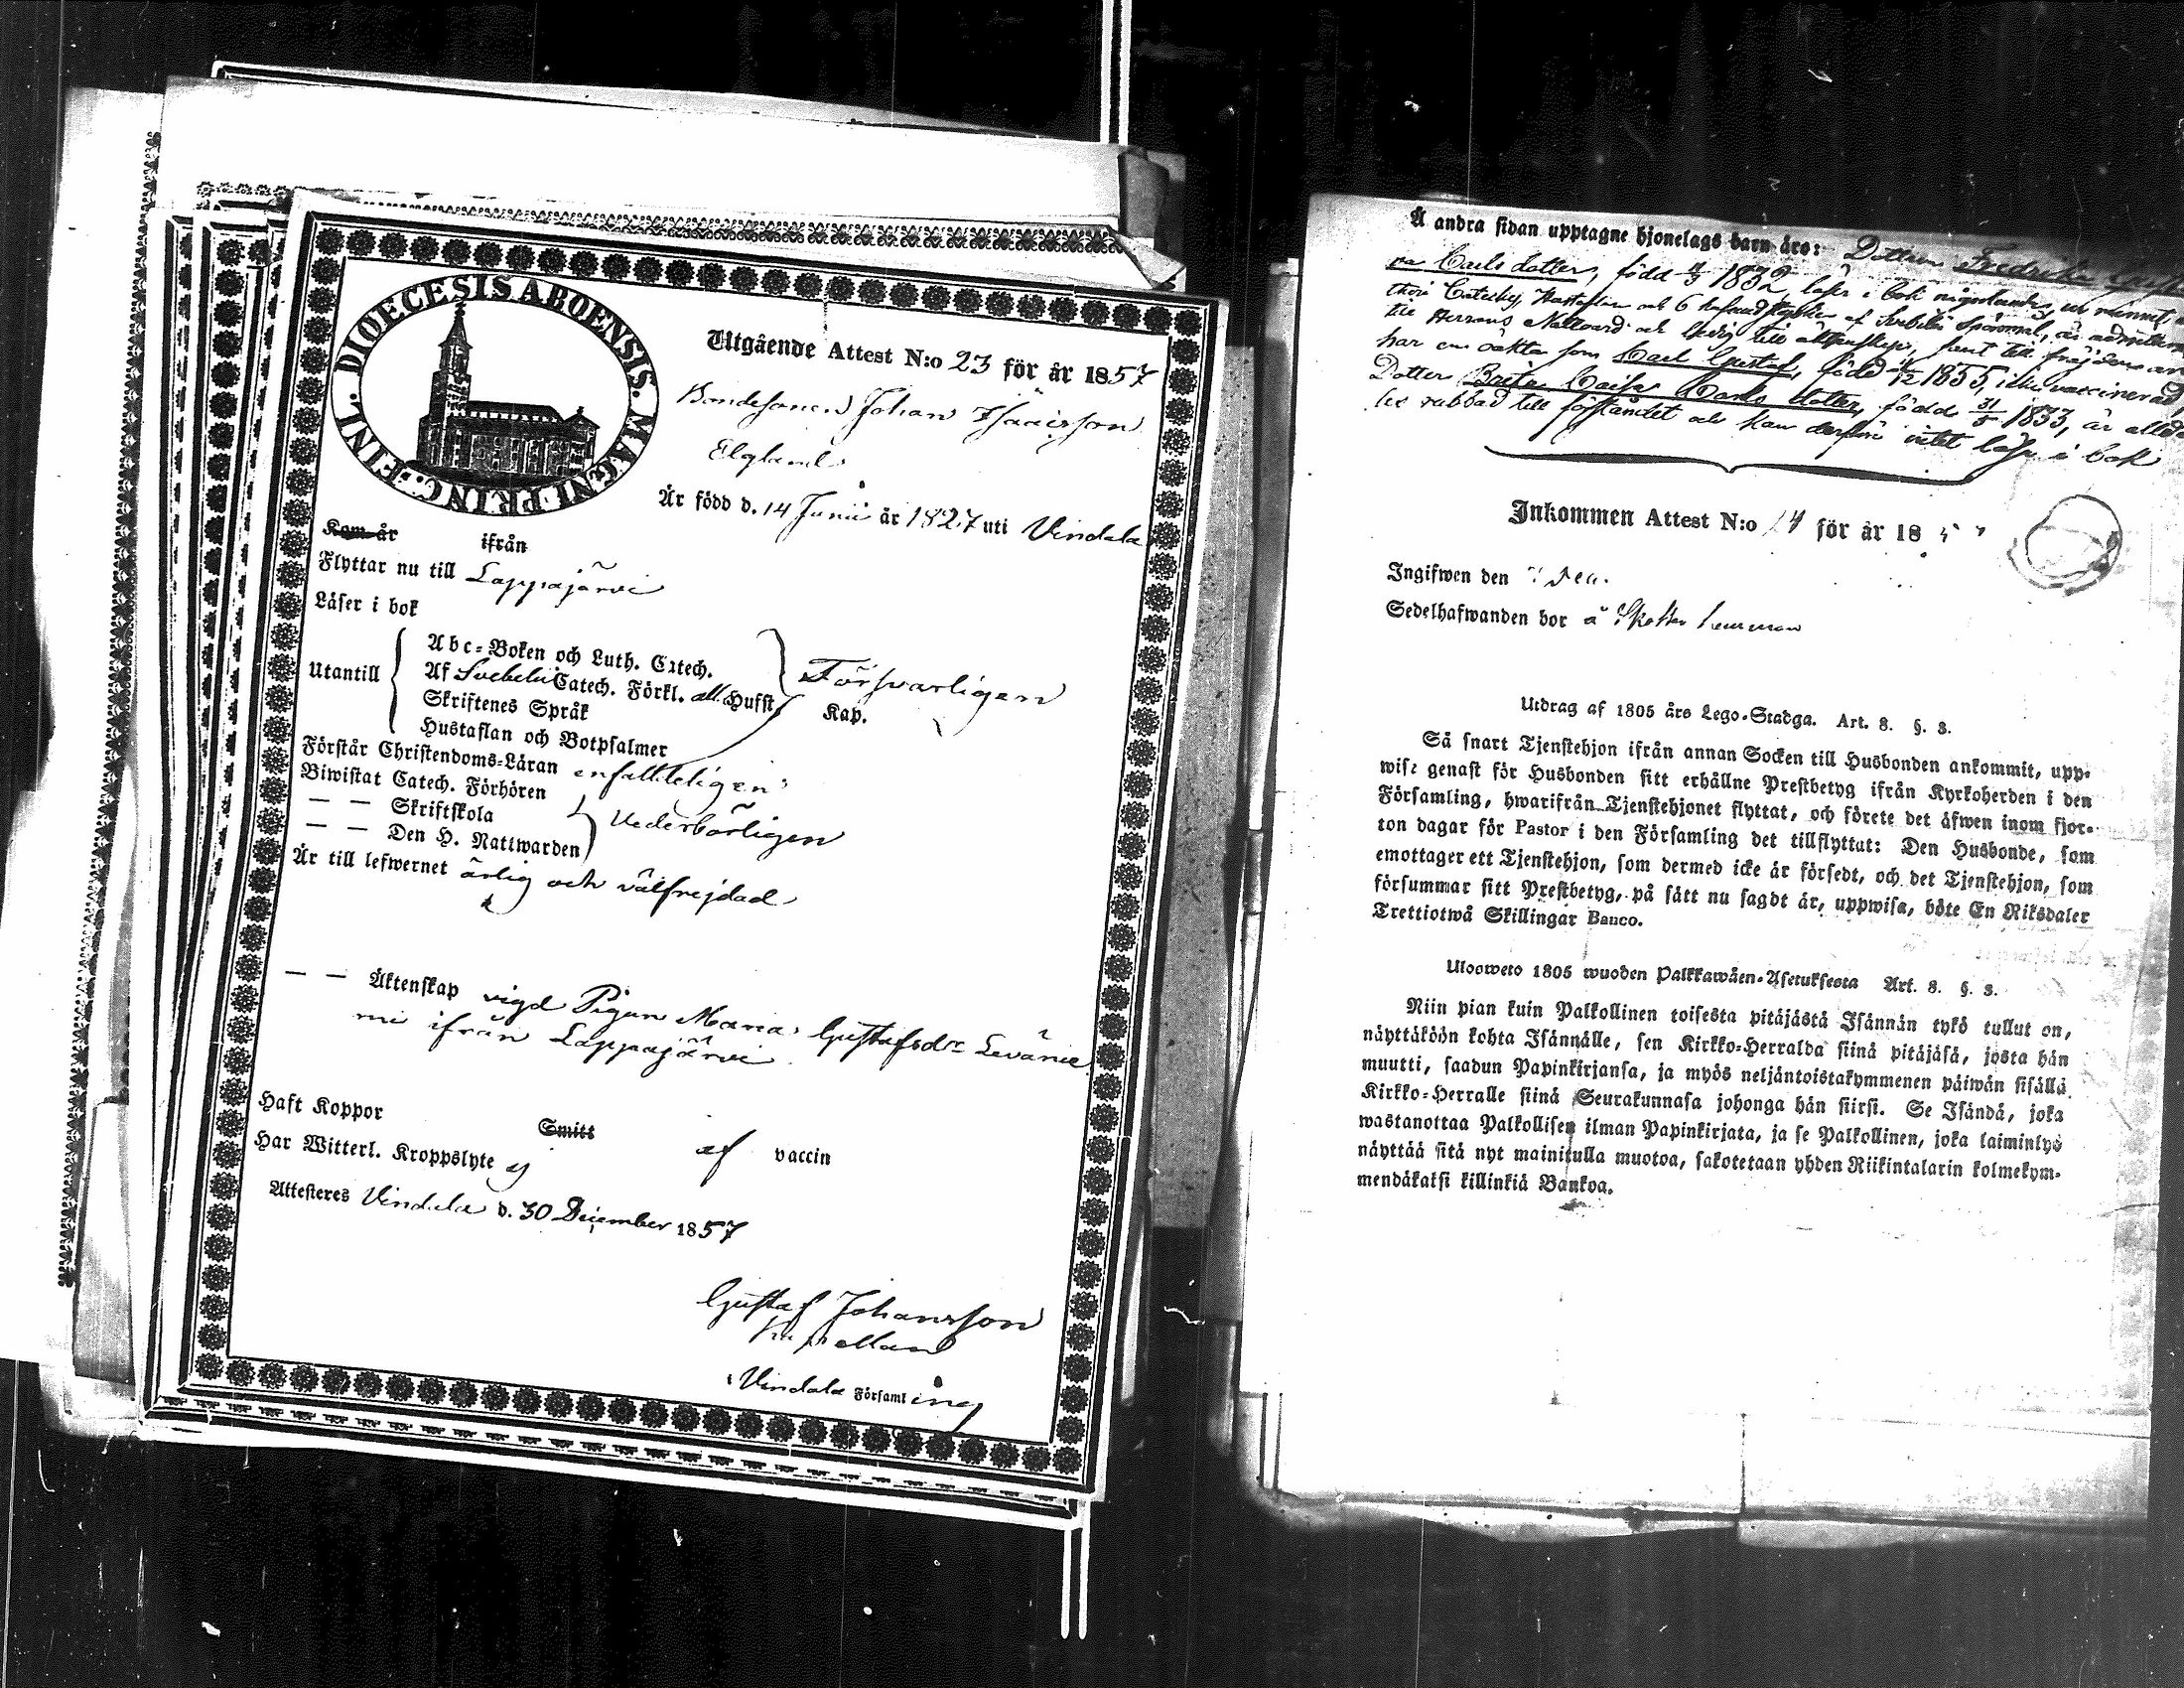 DIOECESIS ABOENSIS. MAGNI PRINC. FINL.
Utgående Attest N:o 23 för år 1857
Bondesonen Johan Isaacsson
Elgland
Är född d. 14 Junii år 1827 uti Vindala
Kom år ifrån
Flyttar nu till Lappajärvi
Läser i bok
Utantill
Abc-Boken och Luth. Catech.
Af Svebelii Catech. Förkl. all. Hufst. Kap.
Försvarligen
Skriftenes Språk
Hustaflan och Botpsalmer
Förstår Christendoms-Läran enfalldeligen
Biwistat Catech. Förhören
— — Skriftskola
Vederbörligen
— — Den H. Nattwarden
Är till lefwernet ärlig och välfrejdad
— — Äktenskap vigd Pigan Maria Gustafsdr Levänie
mi ifrån Lappajärvi
Haft Koppor Smitt af vaccin
Har Witterl. Kroppslyte ej
Attesteres Vindala d. 30 December 1857
Gustaf Johansson
Kapellan
i Vindala Församling
Å andra sidan upptagne hjonelags barn äro: Dottern Fredrika
va Carls dotter, född 1832, läser i bok
6 af Svebelii spörsmål, är
till Herrans Nattvard och till äktenskap, samt till
har en oäkta son Carl Gustaf, född 1855, icke vaccinerad,
Dotter Brita Caisa Carls dotter, född 31/5 1833, är
les rubbad till förståndet och kan derföre intet läsa i bok
Inkommen Attest N:o 14 för år 185
Ingifwen den
Sedelhafwanden bor å
Utdrag af 1805 års Lego-Stadga. Art. 8. §. 3.
Så snart Tjenstehjon ifrån annan Socken till Husbonden ankommit, upp-
wise genast för Husbonden sitt erhållne Prestbetyg ifrån Kyrkoherden i den
Församling, hwarifrån Tjenstehjonet flyttat, och förete det äfwen inom fjor-
ton dagar för Pastor i den Församling det tillflyttat: Den Husbonde, som
emottager ett Tjenstehjon, som dermed icke är försedt, och det Tjenstehjon, som
försummar sitt Prestbetyg, på sätt nu sagdt är, uppwisa, böte En Riksdaler
Trettiotwå Skillingar Banco.
Ulosweto 1805 wuoden Palkkawäen-Asetuksesta Art. 8. §. 3.
Niin pian kuin Palkollinen toisesta pitäjästä Isännän tykö tullut on,
näyttäköön kohta Isännälle, sen Kirkko-Herralda siinä pitäjäsä, josta hän
muutti, saadun Papinkirjansa, ja myös neljäntoistakymmenen päiwän sisällä
Kirkko-Herralle siinä Seurakunnasa johonga hän siirsi. Se Isändä, joka
wastanottaa Palkollisen ilman Papinkirjata, ja se Palkollinen, joka laiminlyö
näyttää sitä nyt mainitulla muotoa, sakotetaan yhden Riikintalarin kolmekym-
mendäkaksi killinkiä Bankoa.